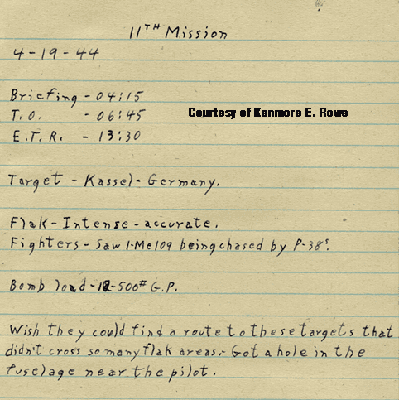 11TH Mission
4-19-44
Briefing - 04:15
T.O. - 06:45
Courtesy of Kenmore E. Rowe
E.T.R. - 13:30
Target - Kassel - Germany.
Flak - Intense - accurate.
Fighters - Saw 1-Me109 being chased by P-38s.
Bomb load - 12-500# G.P.
Wish they could find a route to these targets that
didn't cross so many flak areas. - Got a hole in the
fuselage near the pilot.